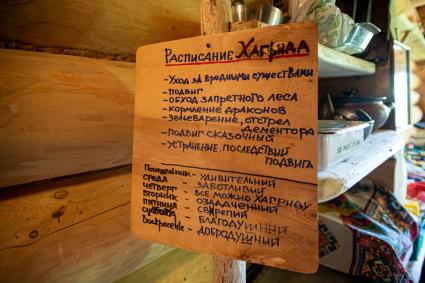 Расписание Хагрида
-Уход за вредными существами
-подвиг
-обход запретного леса
-кормление драконов
-зелеварение, отстрел
дементора
-подвиг сказочный
-устранение последствий
подвига
Понедельник - удивительный
среда - заботливый
четверг - все можно Хагриду
вторник - оздадаченный
пятница - свирепий
суббота - благодушный
воскресенье - добродушный